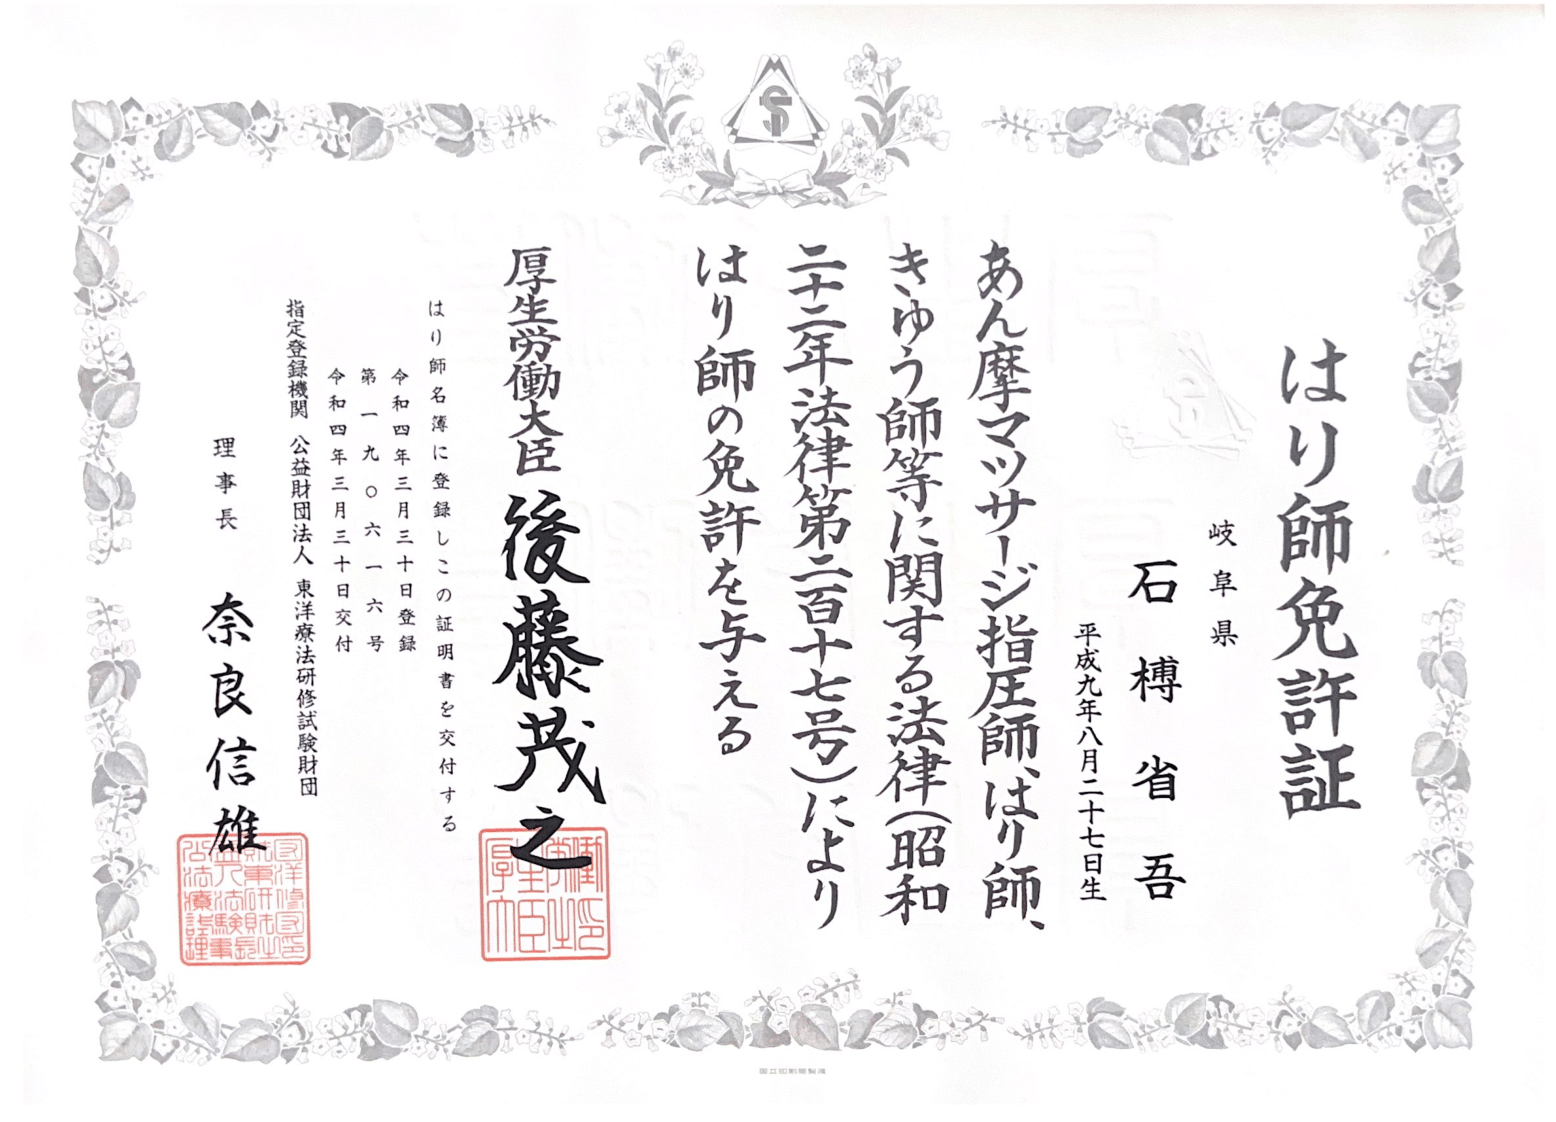 はり師免許証
岐阜県
石榑省吾
平成九年八月二十七日生
あん摩マツサージ指圧師、はり師、
きゆう師等に関する法律(昭和
二十二年法律第二百十七号)により
はり師の免許を与える
厚生労働大臣 後藤茂之
はり師名簿に登録しこの証明書を交付する
令和四年三月三十日登録
第一九〇六一六号
令和四年三月三十日交付
指定登録機関 公益財団法人 東洋療法研修試験財団
理事長 奈良信雄
国立印刷局製造